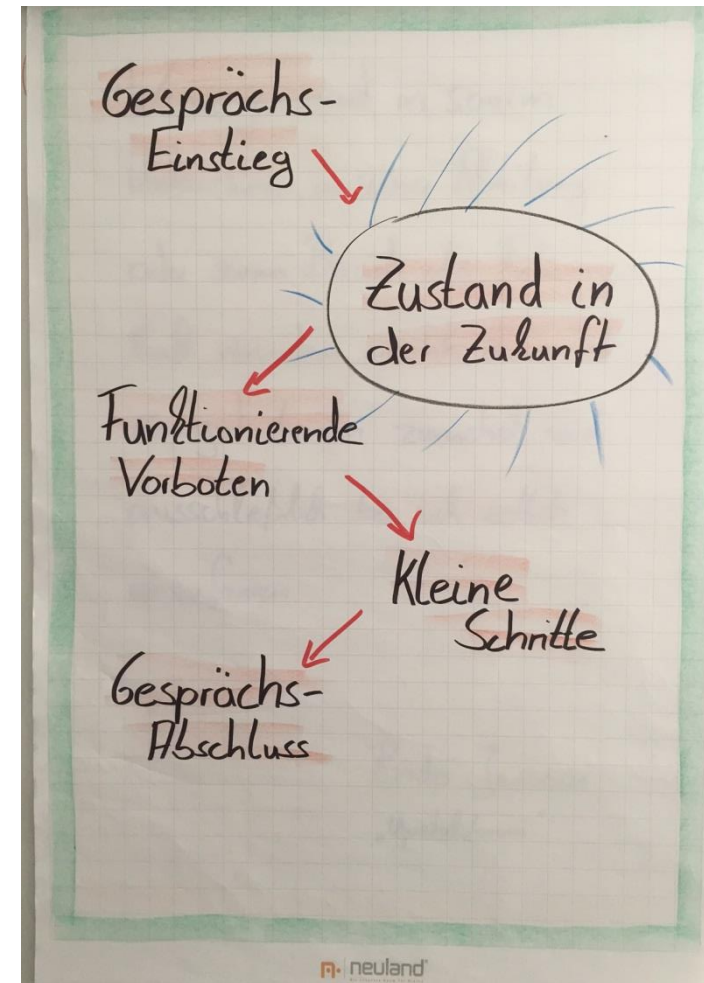 Gesprächs-
Einstieg
Zustand in
der Zukunft
Funktionierende
Vorboten
Kleine
Schritte
Gesprächs-
Abschluss
neuland